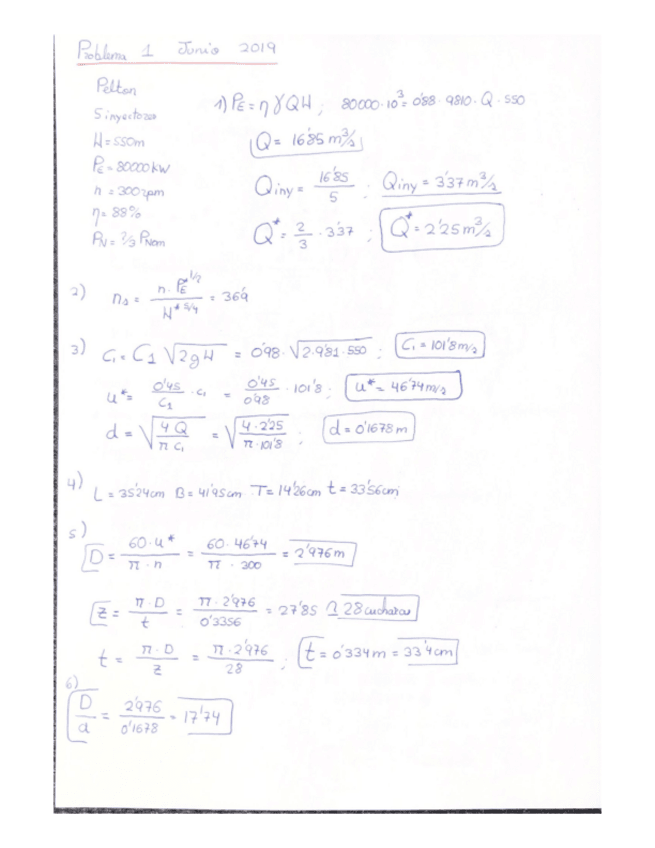 Problema 1 Junio 2019
Pelton
5 inyectores
H = 550m
PE = 80000 kW
n = 300 rpm
η = 88%
PN = 2/3 PNom
1) PE = η γ Q H ; 80000·10³ = 0'88 · 9810 · Q · 550
Q = 16'85 m³/s
Qiny = 16'85 / 5 ; Qiny = 3'37 m³/s
Q* = 2/3 · 3'37 ; Q* = 2'25 m³/s
2) ns = n · PE*^1/2 / H*^5/4 = 36'9
3) C₁ = C₁ √2gH = 0'98 · √2·9'81·550 ; C₁ = 101'8 m/s
u* = 0'45 / C₁ · c₁ = 0'45 / 0'98 · 101'8 ; u* = 46'74 m/s
d = √4Q / π c₁ = √4·2'25 / π·101'8 ; d = 0'1678 m
4) L = 35'24cm B = 41'95cm T = 14'26cm t = 33'56cm
5)
D = 60·u* / π·n = 60·46'74 / π·300 = 2'976 m
z = π·D / t = π·2'976 / 0'3356 = 27'85 ≃ 28 cucharas
t = π·D / z = π·2'976 / 28 ; t = 0'334 m = 33'4 cm
6)
D / d = 2'976 / 0'1678 = 17'74